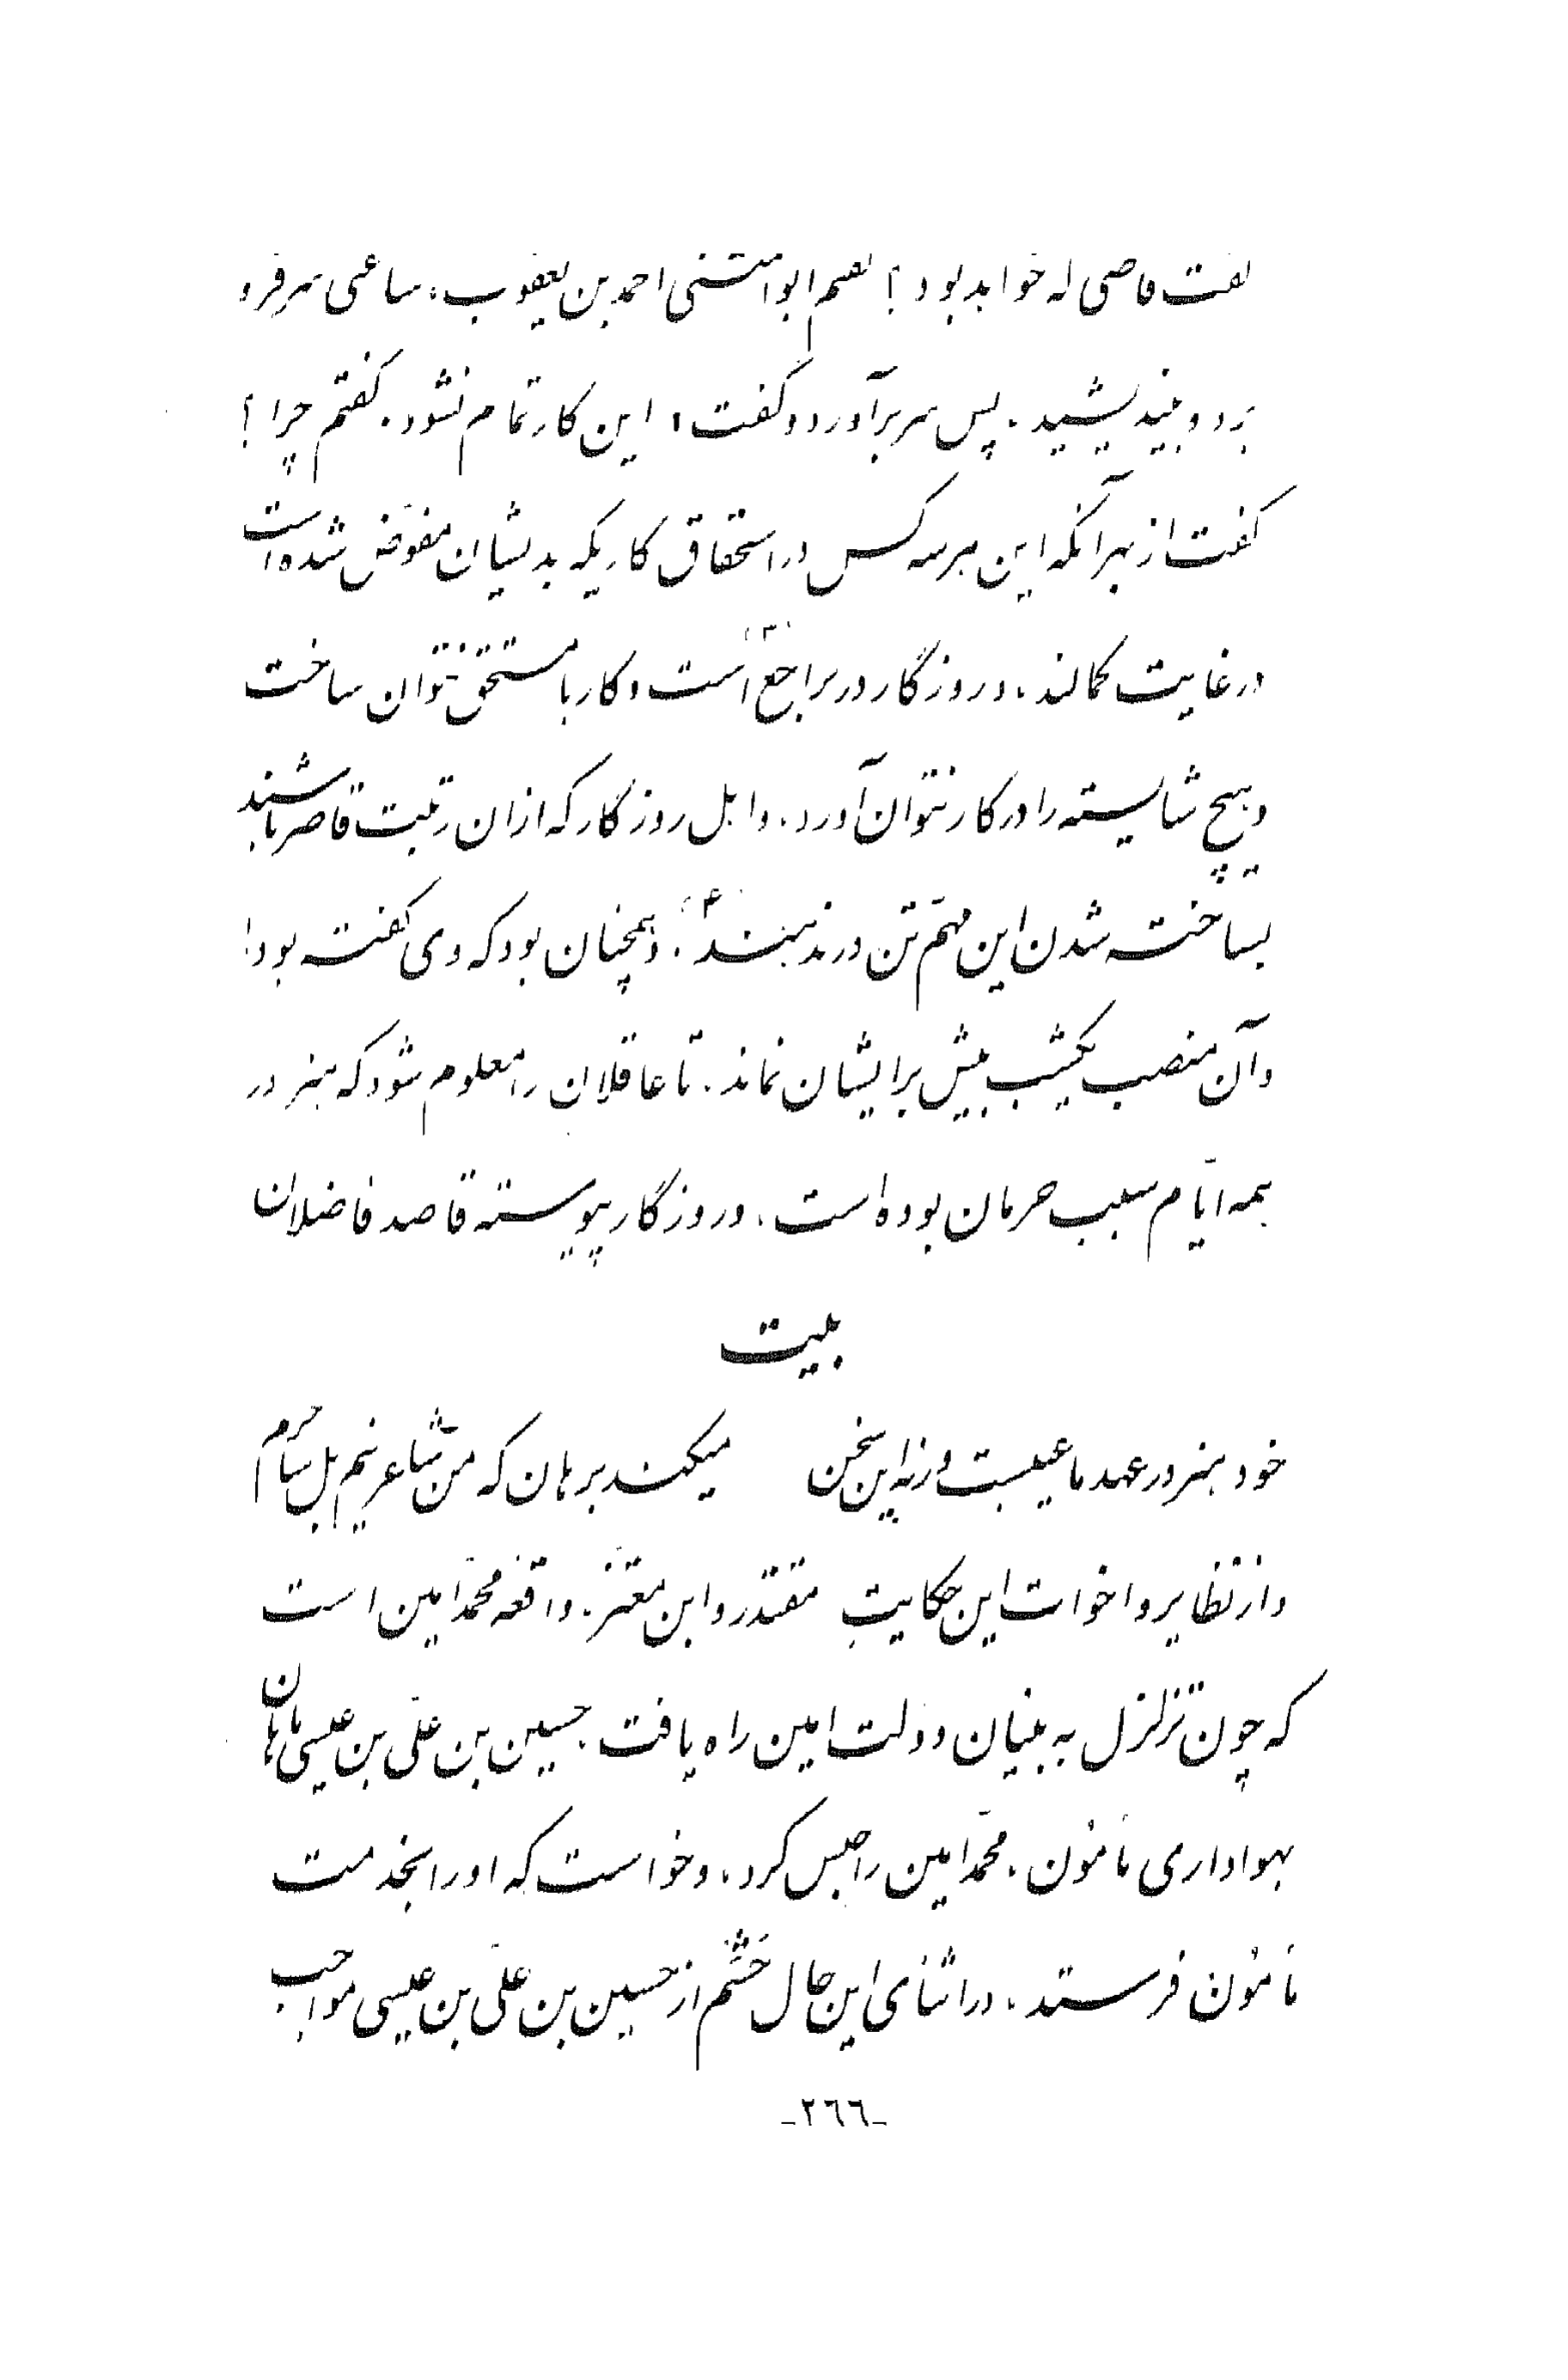 گفت قاضی که خواهد بود؟ گفتم ابوالمثنی احمد بن یعقوب، ساعی سر فرو
برد و بیندیشید. پس سر برآورد و گفت: این کار تمام نشود. گفتم چرا؟
گفت از بهر آنکه این هر سه کس در استحقاق کاریکه بدیشان مفوّض شده است
در غایت کمالند، و روزگار در براجع است و کار با مستحق نتوان ساخت
و هیچ شایسته را در کار نتوان آورد. و اهل روزگار که ازان رتبت قاصر باشند
بساخت شدن این مهمّ تن در ندهند«۴». و همچنان بود که وی گفته بود!
و آن منصب یکشب بیش بر ایشان نماند. تا عاقلان را معلوم شود که هنر در
همه ایّام سبب حرمان بوده است، و روزگار پیوسته قاصد فاضلان
بیت
خود هنر در عهد ما عیبست ورنه این سخن میکند برهان که من شاعر نیم بل ساحرم
و از نظایر و اخوات این حکایتِ مقتدر و ابن معتزّ. واقعه محمّد امین است
که چون تزلزل به بنیان دولت امین راه یافت. حسین بن علی بن عیسی ماهان
بهواداری مأمون. محمّد امین را حبس کرد، و خواست که او را بخدمت
مأمون فرستد، در اثنای این حال حَشَم از حسین بن علی بن عیسی مواجب
-٢٦٦-